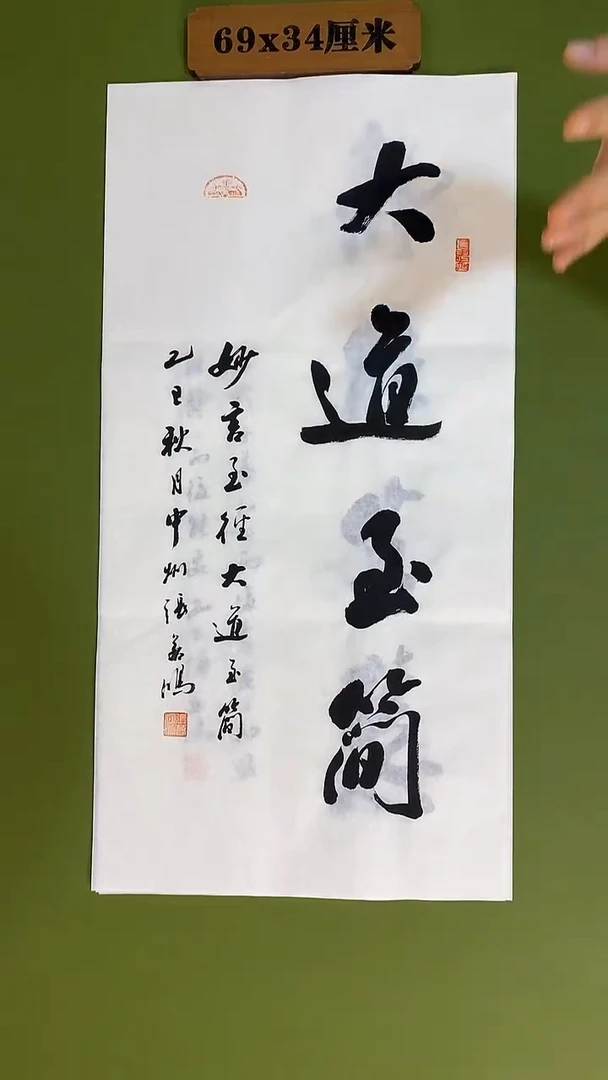 69x34厘米
大道至簡
妙言至徑大道至簡
乙丑秋月中州張